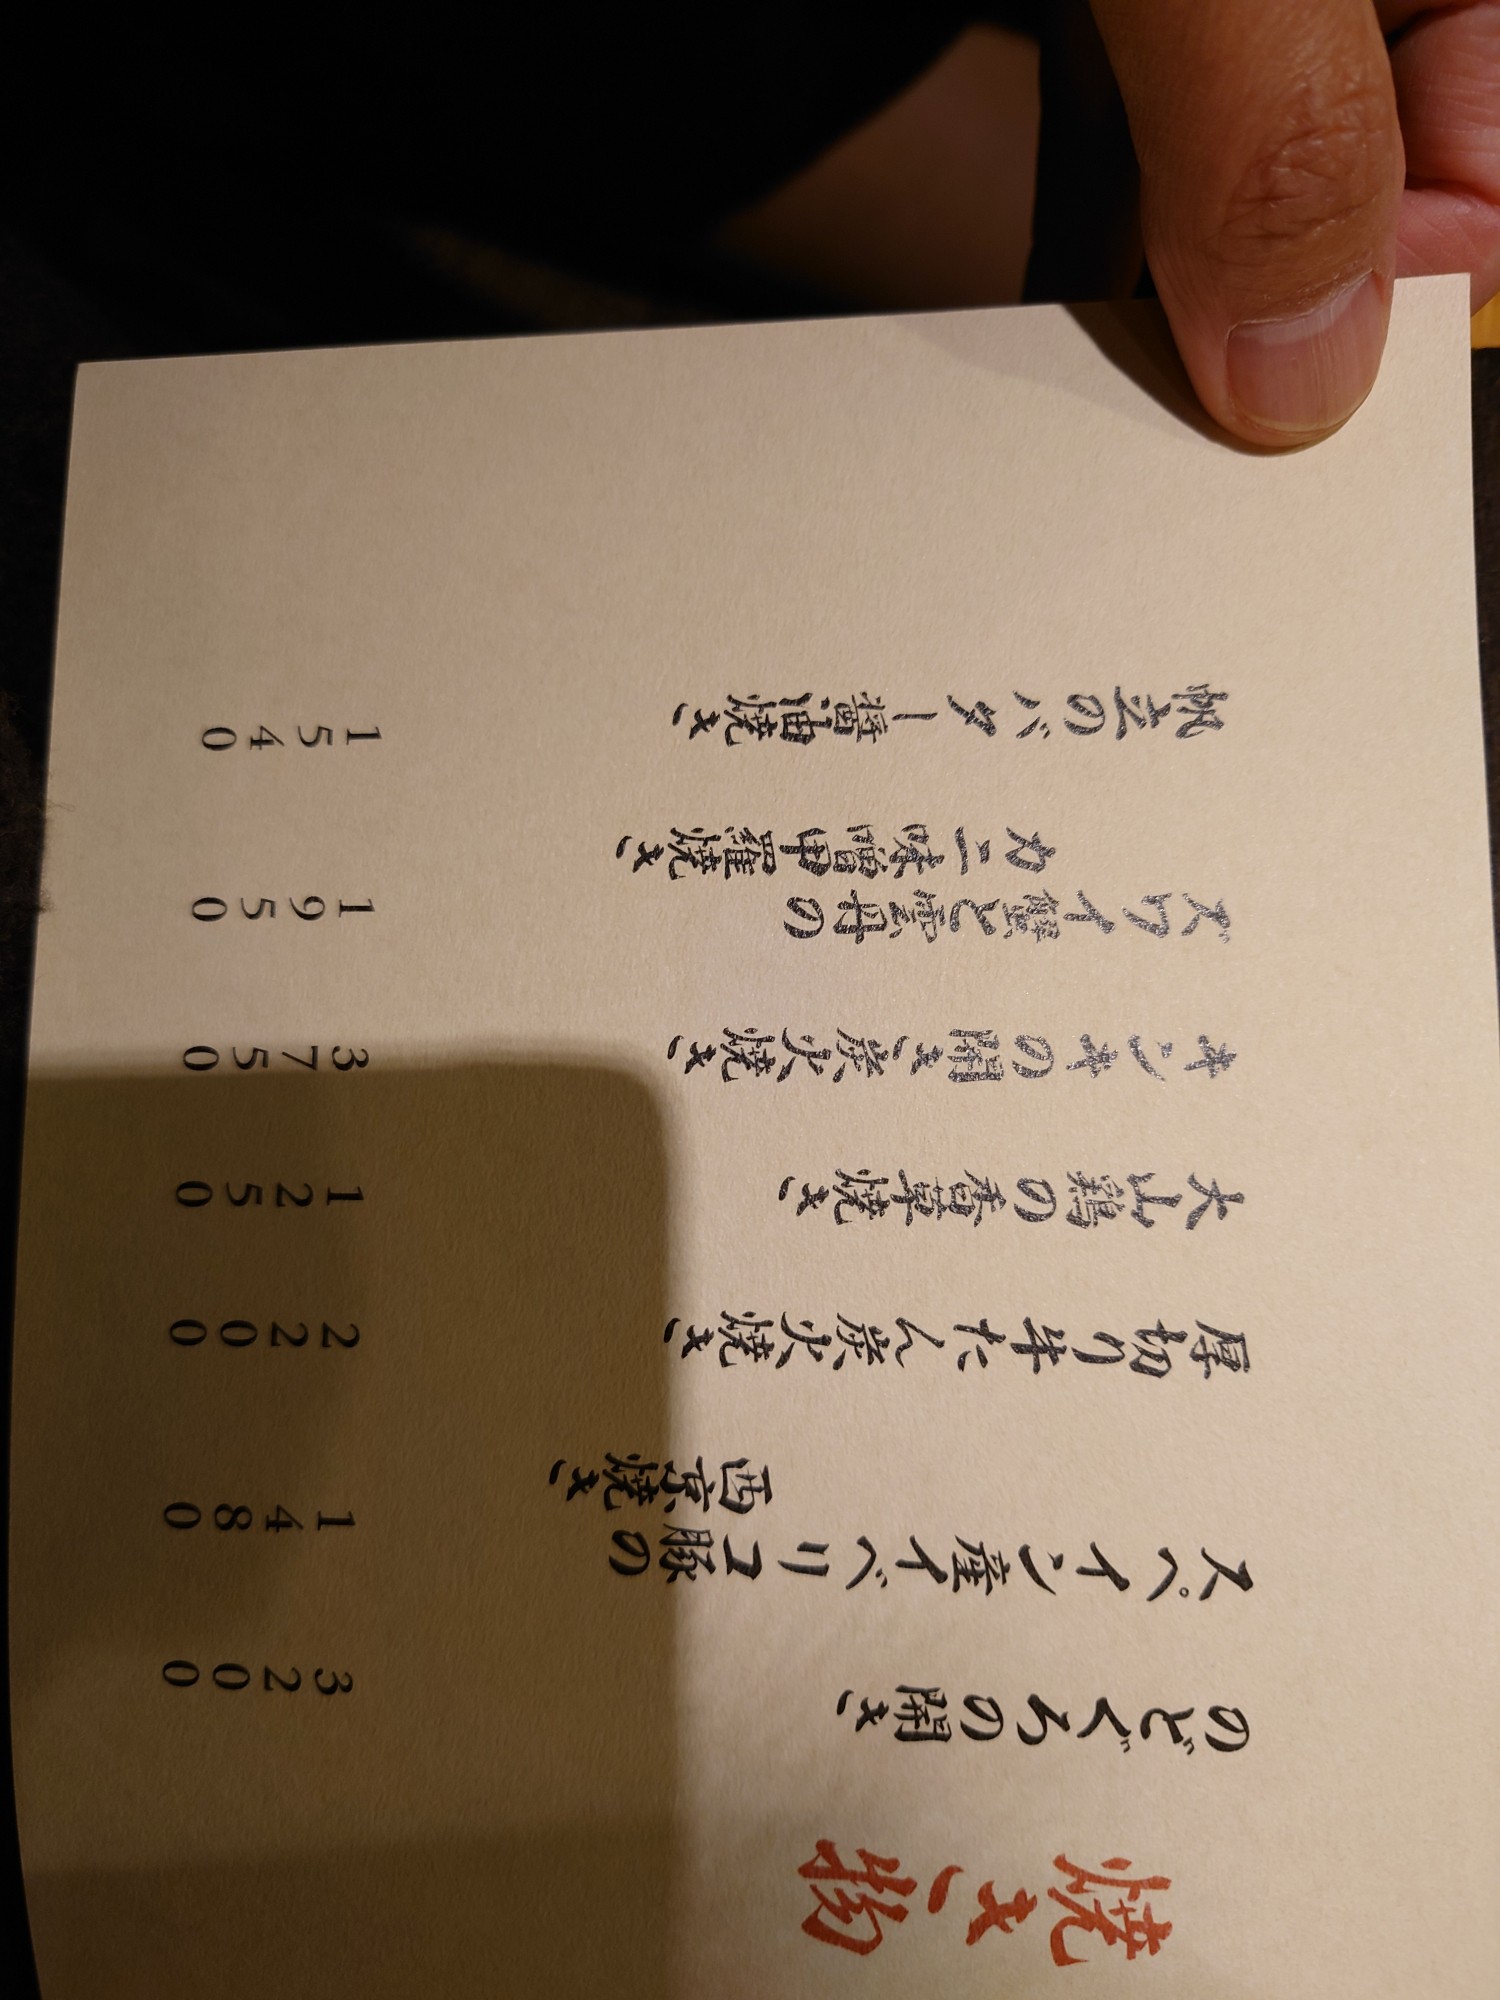 焼き物
のどぐろの開き
3200
スペイン産イベリコ豚の
西京焼き
1480
厚切り牛たん炭火焼き
2200
大山鶏の香草焼き
1250
キンキの開き炭火焼き
3750
ズワイ蟹と雲丹の
カニ味噌甲羅焼き
1950
帆立のバター醤油焼き
1540